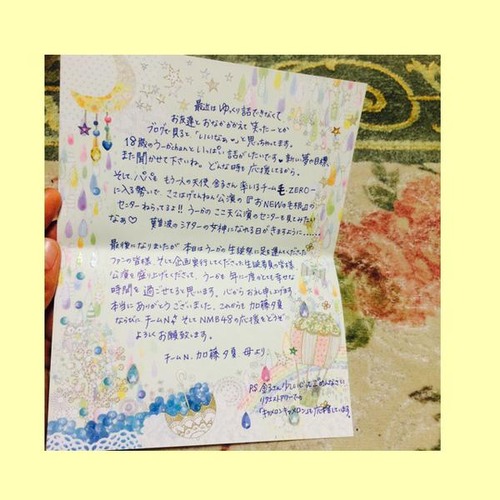 最近は ゆっくり話できなくて
お友達と おなかかかえて笑ったーとか
ブログで見ると「いいなぁ〜」と思っちゃってます。
18歳のうーかchanと いっぱい 話がしたいです 新しい夢の目標
また聞かせて下さいね。どんな時も応援してるから。
そして もう一人の天使 金子さん 率いるチーム毛ZERO
に入る勢いで、ここはげてんねん公演の『おNEWの毛根』の
センターねらってるよ!! うーかの ここ天公演のセンターも見てみたい
なぁ♡ 難波のシアターの女神になれる日がきますように……
最後になりましたが 本日は うーかの生誕祭に足を運んでくださった
ファンの皆様 そして企画実行してくださった生誕委員の皆様
公演を盛り上げてくださって、うーかも 年に一度のとても幸せな
時間を 過ごせてると思います。心から お礼申し上げます
本当にありがとうございました。これからも 加藤夕夏
ならびに チームN そして NMB48の応援をどうぞ
よろしくお願い致します。
チームN 加藤夕夏 母より
PS. 金子さん ごめんなさい
リクエストアワーでの
「キャメロンキャメロン」も応援しています。